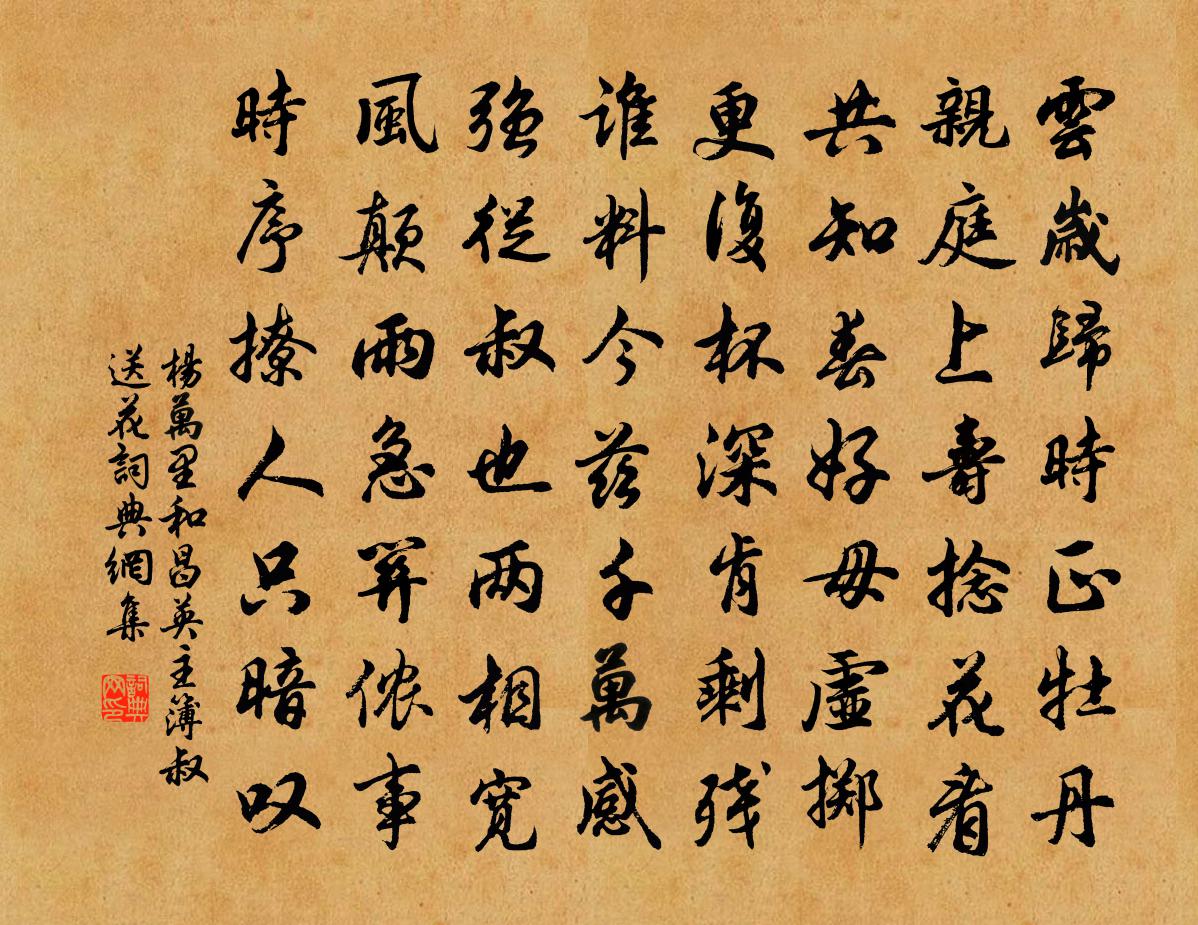 雲歲歸時正牡丹
親庭上壽捻花看
共知春好毋虛擲
更復杯深肯剩残
誰料今茲千萬感
強從叔也两相寬
風顛雨急關儂事
時序撩人只暗叹
楊萬里和昌英主簿叔
送花詞典網集
詞典网印